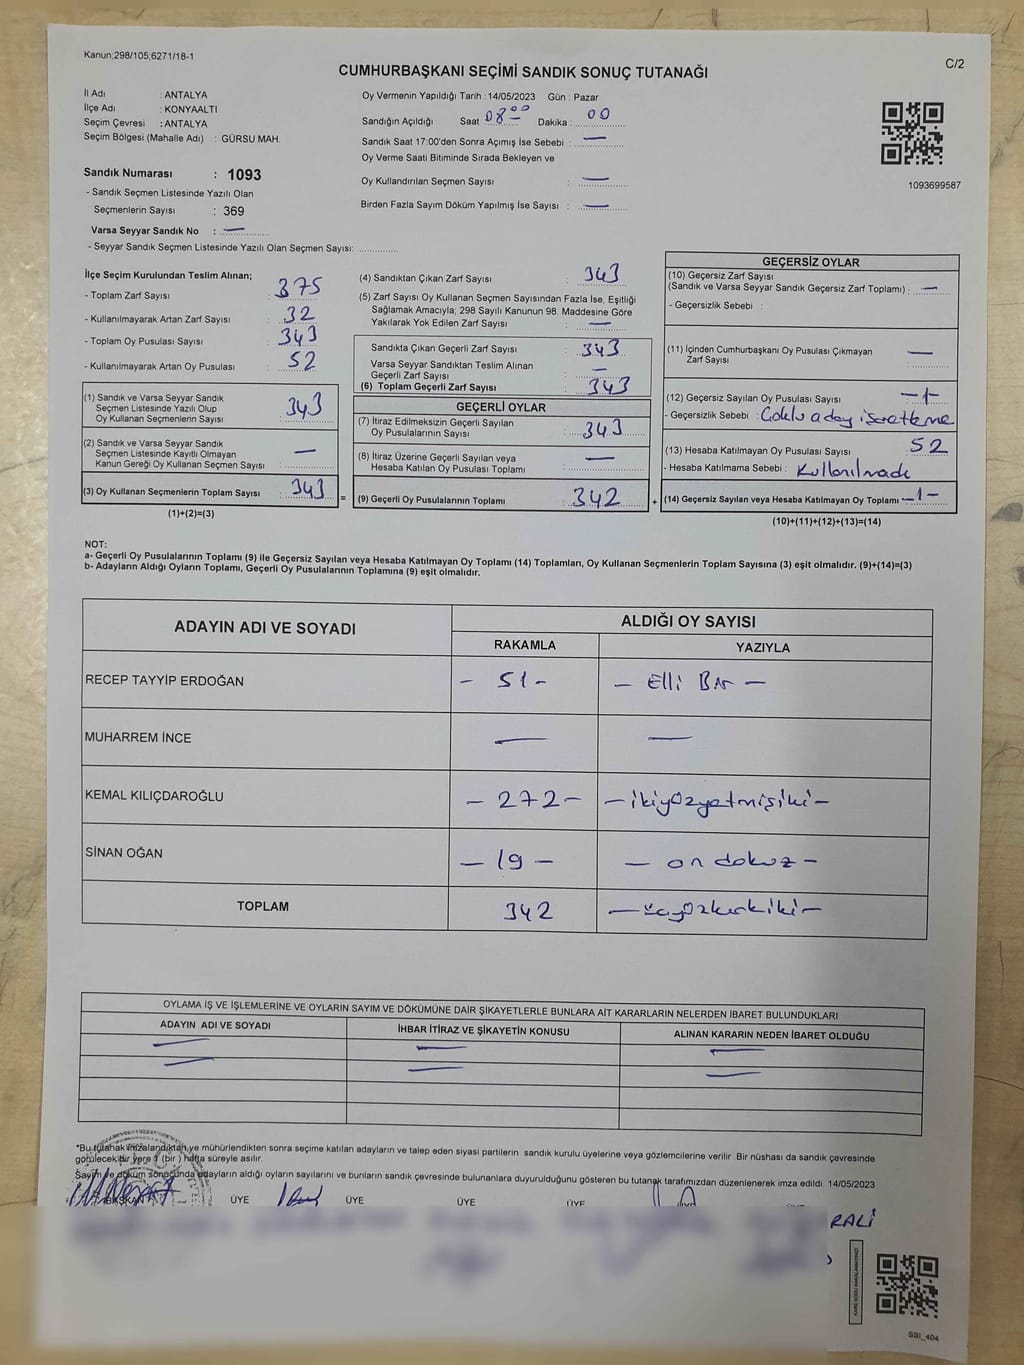 Kanun;298/105;6271/18-1
C/2
CUMHURBAŞKANI SEÇİMİ SANDIK SONUÇ TUTANAĞI
İl Adı : ANTALYA
İlçe Adı : KONYAALTI
Seçim Çevresi : ANTALYA
Seçim Bölgesi (Mahalle Adı) : GÜRSU MAH.
Sandık Numarası : 1093
- Sandık Seçmen Listesinde Yazılı Olan
Seçmenlerin Sayısı : 369
Varsa Seyyar Sandık No : —
- Seyyar Sandık Seçmen Listesinde Yazılı Olan Seçmen Sayısı: ..............
Oy Vermenin Yapıldığı Tarih : 14/05/2023 Gün : Pazar
Sandığın Açıldığı Saat 08⁰⁰ Dakika : 00
Sandık Saat 17:00'den Sonra Açımış İse Sebebi : —
Oy Verme Saati Bitiminde Sırada Bekleyen ve
Oy Kullandırılan Seçmen Sayısı : —
Birden Fazla Sayım Döküm Yapılmış İse Sayısı : —
1093699587
İlçe Seçim Kurulundan Teslim Alınan;
- Toplam Zarf Sayısı : 375
- Kullanılmayarak Artan Zarf Sayısı : 32
- Toplam Oy Pusulası Sayısı : 343
- Kullanılmayarak Artan Oy Pusulası : 52
(1) Sandık ve Varsa Seyyar Sandık
Seçmen Listesinde Yazılı Olup
Oy Kullanan Seçmenlerin Sayısı : 343
(2) Sandık ve Varsa Seyyar Sandık
Seçmen Listesinde Kayıtlı Olmayan
Kanun Gereği Oy Kullanan Seçmen Sayısı : —
(3) Oy Kullanan Seçmenlerin Toplam Sayısı : 343 =
(1)+(2)=(3)
(4) Sandıktan Çıkan Zarf Sayısı : 343
(5) Zarf Sayısı Oy Kullanan Seçmen Sayısından Fazla İse, Eşitliği
Sağlamak Amacıyla; 298 Sayılı Kanunun 98. Maddesine Göre
Yakılarak Yok Edilen Zarf Sayısı : —
Sandıkta Çıkan Geçerli Zarf Sayısı : 343
Varsa Seyyar Sandıktan Teslim Alınan
Geçerli Zarf Sayısı : —
(6) Toplam Geçerli Zarf Sayısı : 343
GEÇERLİ OYLAR
(7) İtiraz Edilmeksizin Geçerli Sayılan
Oy Pusulalarının Sayısı : 343
(8) İtiraz Üzerine Geçerli Sayılan veya
Hesaba Katılan Oy Pusulası Toplamı : —
(9) Geçerli Oy Pusulalarının Toplamı : 342 +
GEÇERSİZ OYLAR
(10) Geçersiz Zarf Sayısı
(Sandık ve Varsa Seyyar Sandık Geçersiz Zarf Toplamı) : —
- Geçersizlik Sebebi :
(11) İçinden Cumhurbaşkanı Oy Pusulası Çıkmayan
Zarf Sayısı : —
(12) Geçersiz Sayılan Oy Pusulası Sayısı : —1—
- Geçersizlik Sebebi : Çoklu aday işaretleme
(13) Hesaba Katılmayan Oy Pusulası Sayısı : 52
- Hesaba Katılmama Sebebi : Kullanılmadı
(14) Geçersiz Sayılan veya Hesaba Katılmayan Oy Toplamı —1—
(10)+(11)+(12)+(13)=(14)
NOT:
a- Geçerli Oy Pusulalarının Toplamı (9) ile Geçersiz Sayılan veya Hesaba Katılmayan Oy Toplamı (14) Toplamları, Oy Kullanan Seçmenlerin Toplam Sayısına (3) eşit olmalıdır. (9)+(14)=(3)
b- Adayların Aldığı Oyların Toplamı, Geçerli Oy Pusulalarının Toplamına (9) eşit olmalıdır.
ADAYIN ADI VE SOYADI ALDIĞI OY SAYISI
RAKAMLA YAZIYLA
RECEP TAYYİP ERDOĞAN — 51 — — Elli Bir —
MUHARREM İNCE — —
KEMAL KILIÇDAROĞLU — 272 — — ikiyüzyetmişiki —
SİNAN OĞAN — 19 — — on dokuz —
TOPLAM 342 — üçyüzkırkiki —
OYLAMA İŞ VE İŞLEMLERİNE VE OYLARIN SAYIM VE DÖKÜMÜNE DAİR ŞİKAYETLERLE BUNLARA AİT KARARLARIN NELERDEN İBARET BULUNDUKLARI
ADAYIN ADI VE SOYADI İHBAR İTİRAZ VE ŞİKAYETİN KONUSU ALINAN KARARIN NEDEN İBARET OLDUĞU
— — —
— — —
*Bu tutanak imzalandıktan ve mühürlendikten sonra seçime katılan adayların ve talep eden siyasi partilerin sandık kurulu üyelerine veya gözlemcilerine verilir. Bir nüshası da sandık çevresinde
görülecek bir yere 1 (bir) hafta süreyle asılır.
Sayım ve döküm sonucunda adayların aldığı oyların sayılarını ve bunların sandık çevresinde bulunanlara duyurulduğunu gösteren bu tutanak tarafımızdan düzenlenerek imza edildi. 14/05/2023
BAŞKAN ÜYE ÜYE ÜYE ÜYE
RALİ
SSİ_404